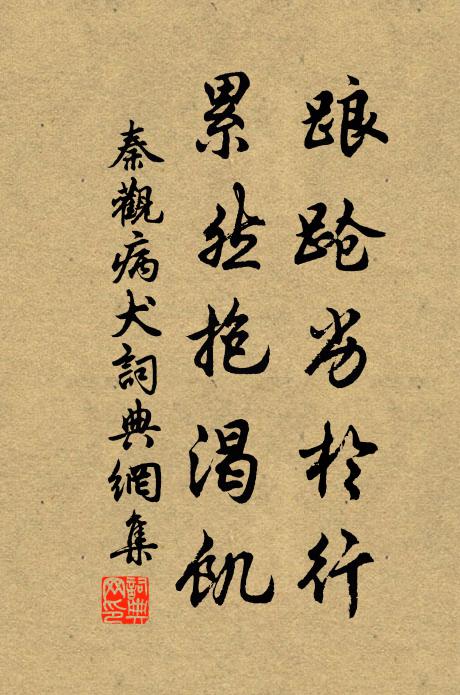 踉蹌劣於行
累然抱渴飢
秦觀病犬詞典網集
詞典
网印